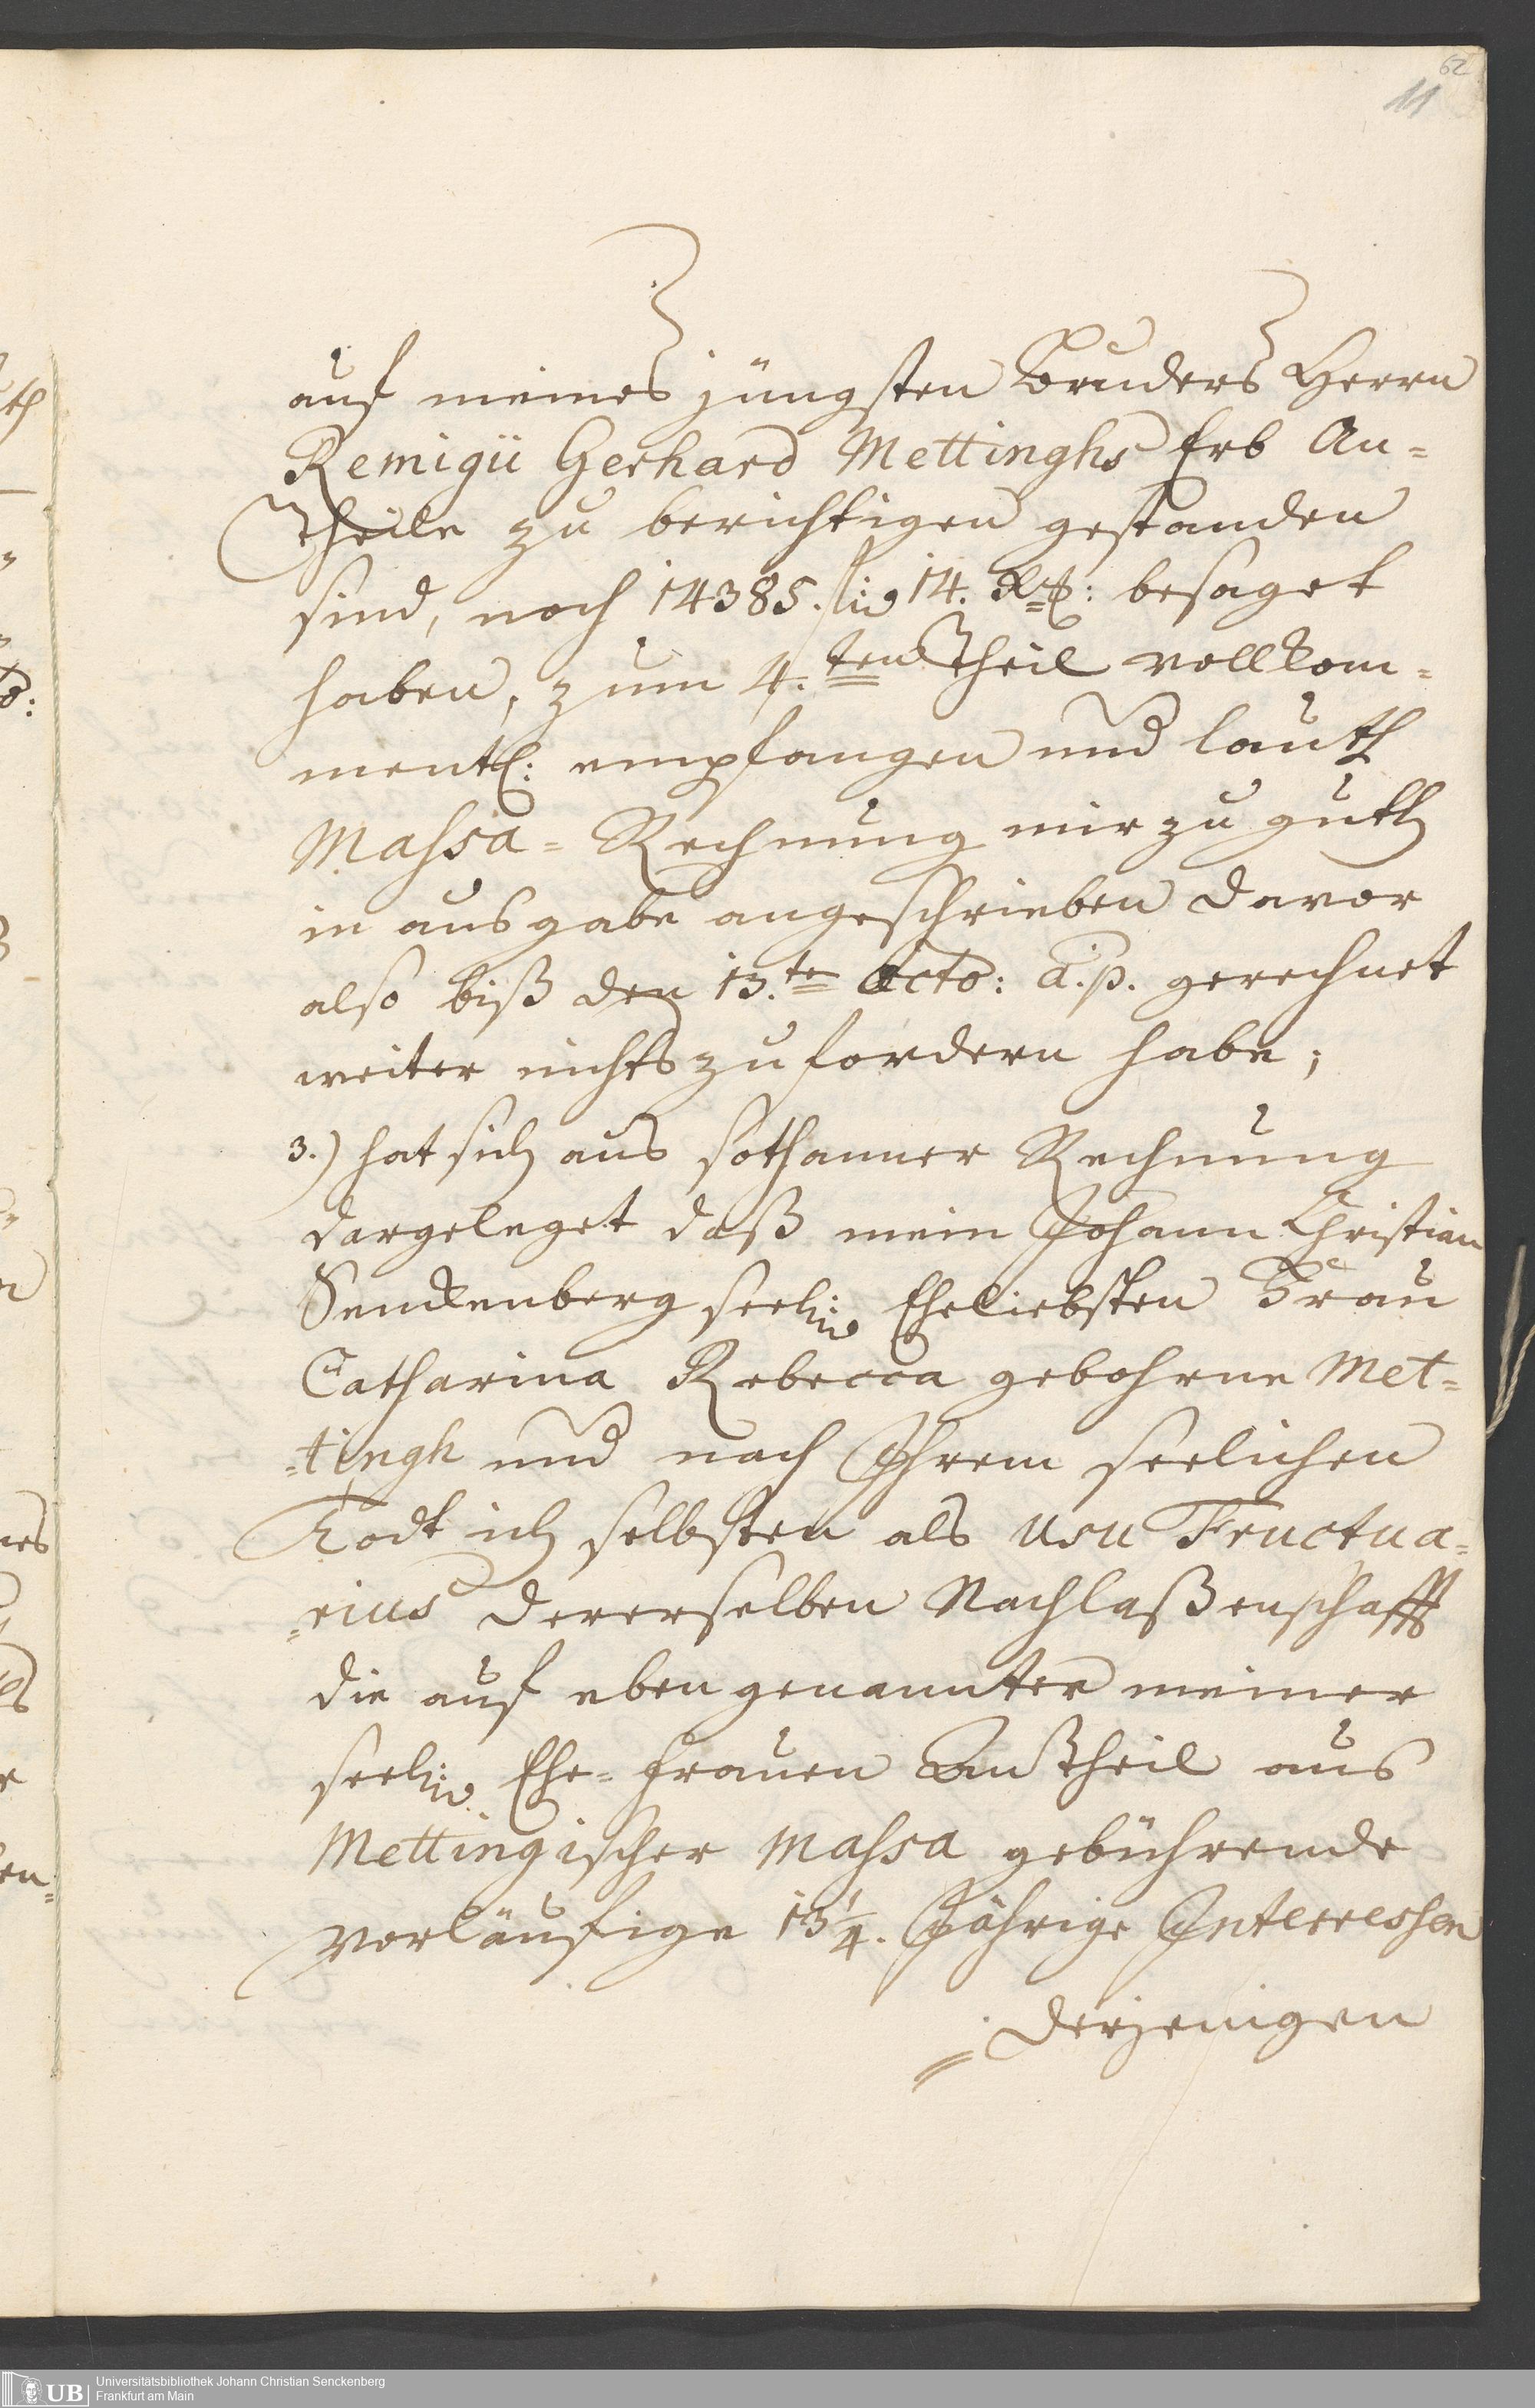 62
11
auf meines jüngsten Bruders Herrn
Remigii Gerhard Mettinghs Erb An=
Theile zu berichtigen gestanden
sind, noch 14385. 14. besaget
haben, zum 4.ten Theil vollkom=
mentl: empfangen und lauth
Massa=Rechnung mir zu guth
in ausgabe angeschrieben davor
also biß den 13.te Octo: a.p. gerechnet
weiter nichts zu fordern habe;
3.) hat sich aus sothanner Rechnung
dargeleget daß mein Johann Christian
Senckenberg seel: Eheliebsten Frau
Catharina Rebecca gebohrne Met=
=tingh und nach Ihrem seelichen
Todt ich selbsten als usu Fructua=
=rius dererselben Nachlaßenschafft
die auf eben genannter meiner
seel: Ehe=Frauen Antheil aus
Mettingischer Massa gebührende
vorläufige 13¼. Jährige Interressen
derjenigen
UB
Universitätsbibliothek Johann Christian Senckenberg
Frankfurt am Main